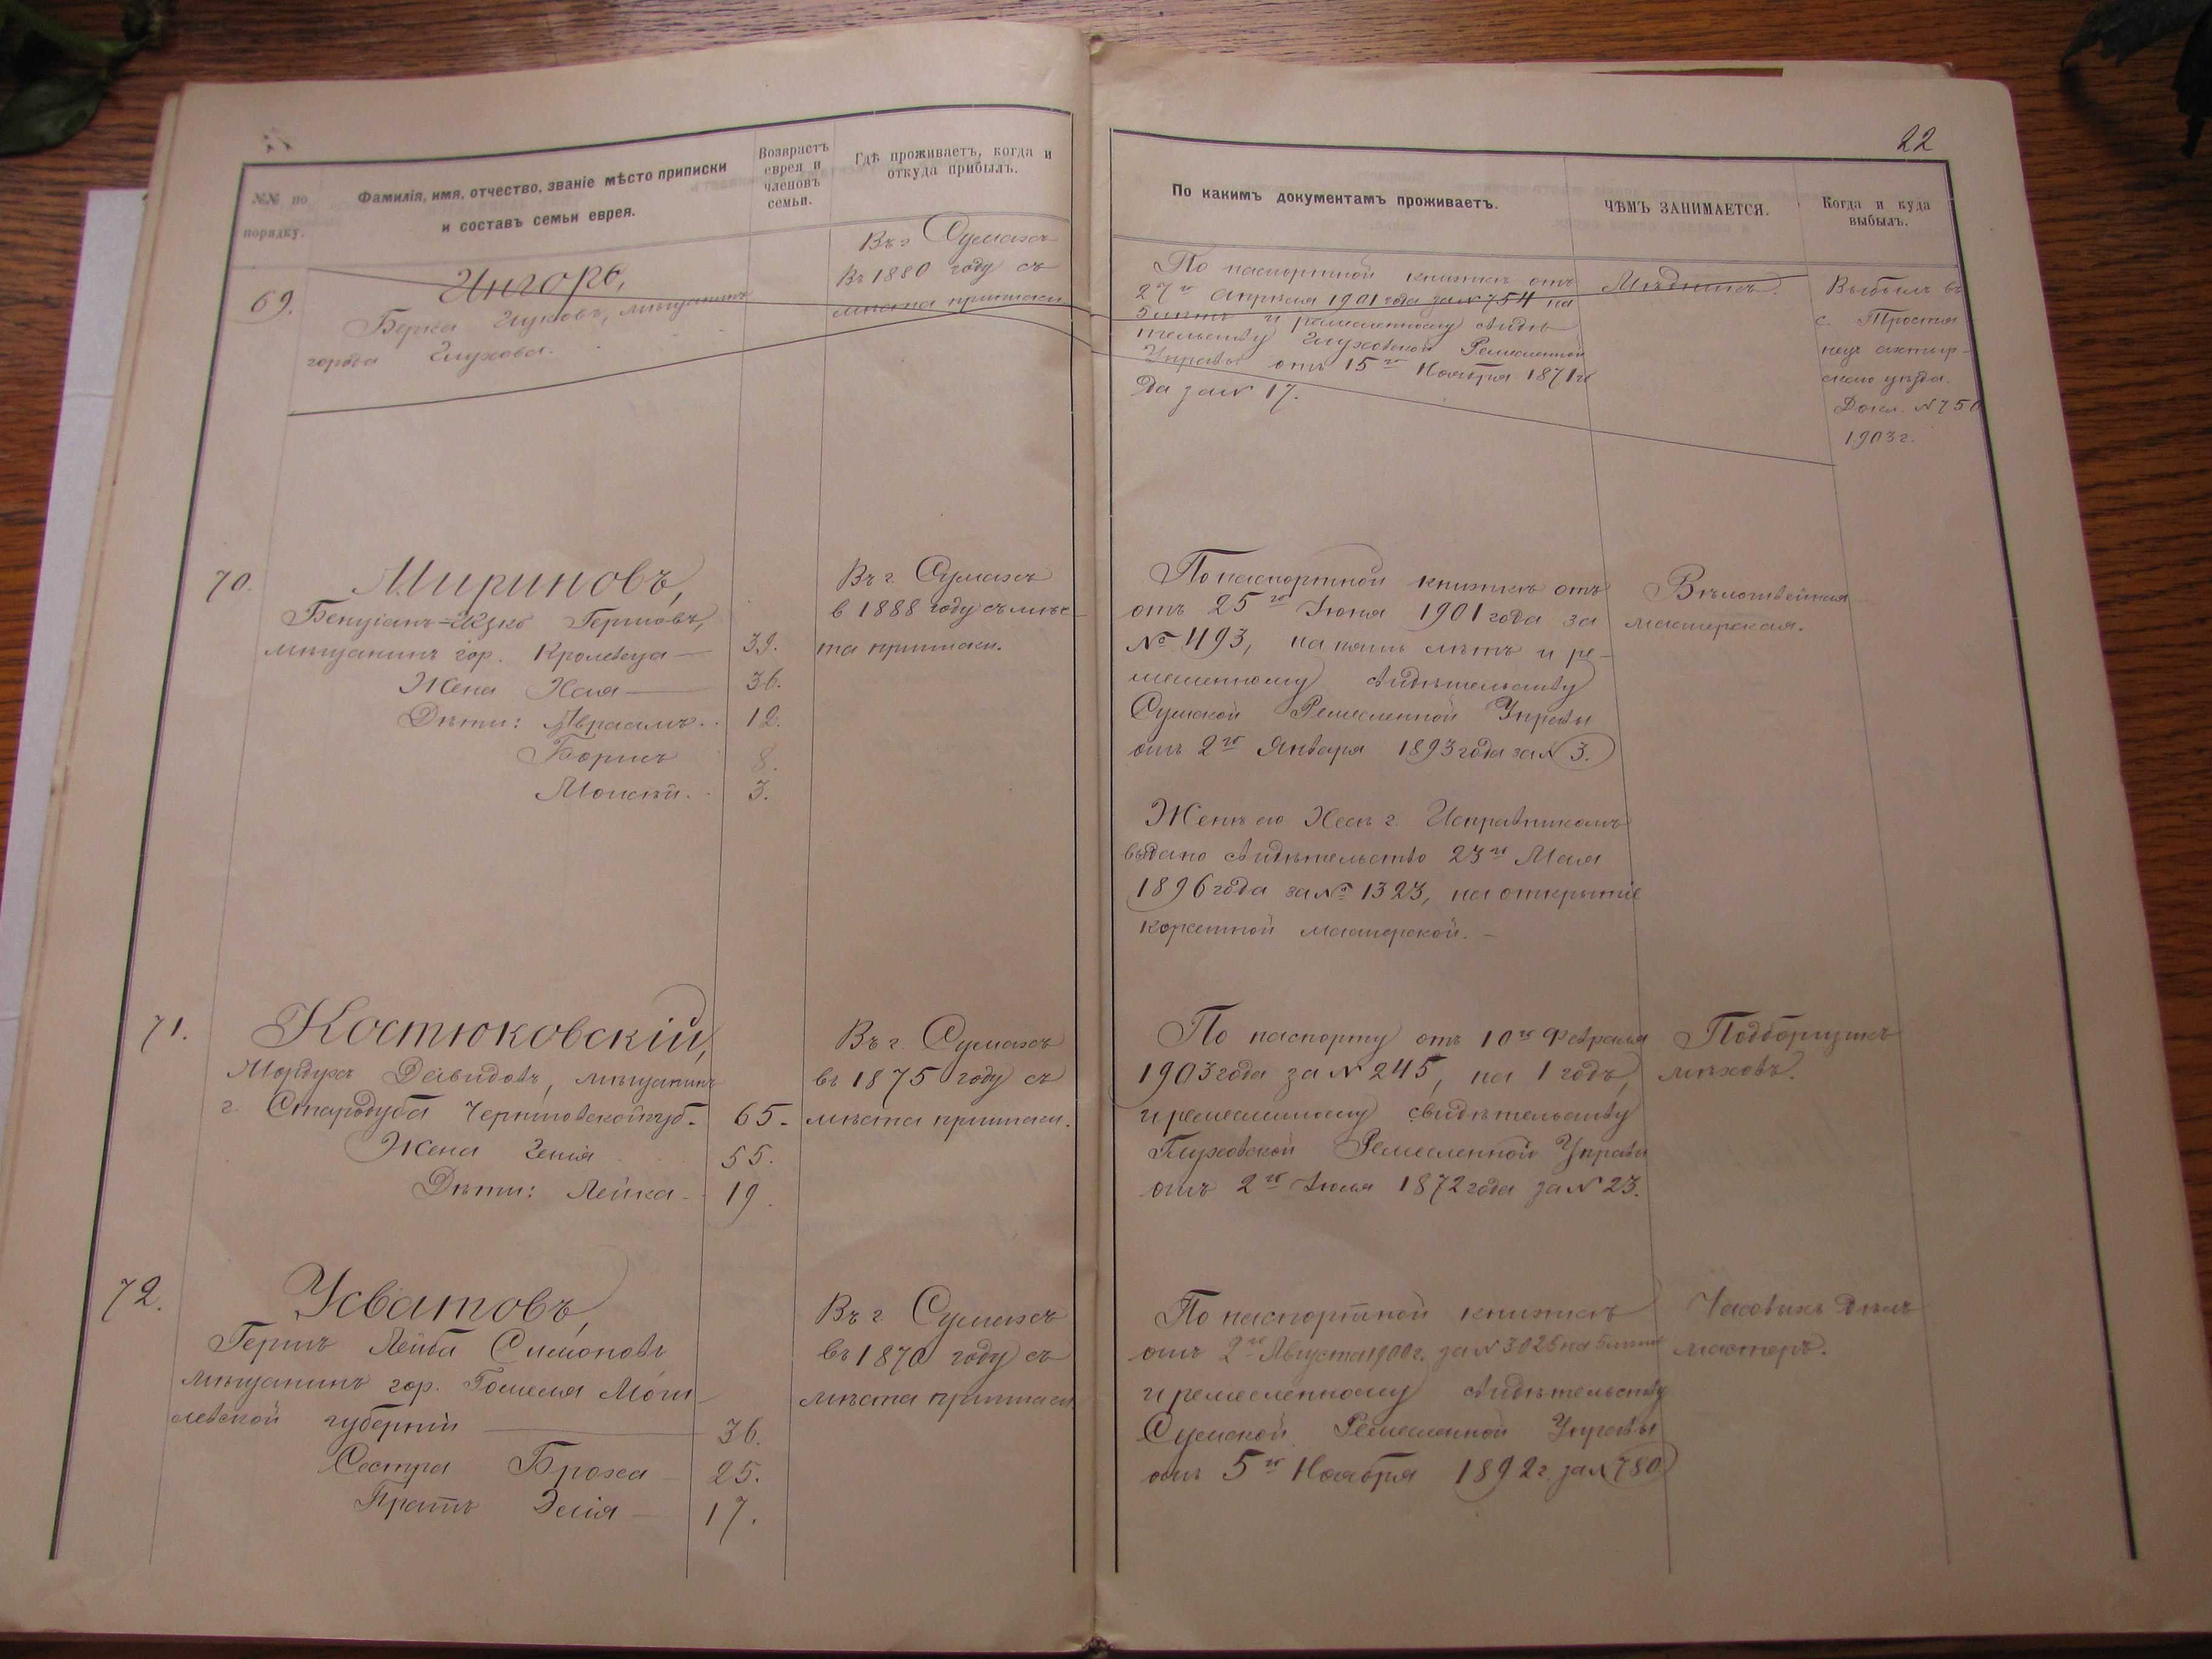 22
№№ по
порядку.
Фамилія, имя, отчество, званіе мѣсто приписки
и составъ семьи еврея.
Возврастъ
еврея и
членовъ
семьи.
Гдѣ проживаетъ, когда и
откуда прибылъ.
По какимъ документамъ проживаетъ.
ЧѢМЪ ЗАНИМАЕТСЯ.
Когда и куда
выбылъ.
69.
Ингоръ,
Берка мѣщанинъ
города Глухова.
Въ г Сумахъ
Въ 1880 году съ
мѣста приписки
По паспортной книжкѣ отъ
27го Апрѣля 1901 года за № 754 на
5 лѣтъ и ремесленному свидѣ
тельству Глуховской Ремесленной
Управы отъ 15го Ноября 1871 го
да за № 17.
Мѣдникъ.
Выбылъ въ
с. Тростя
нец ахтыр-
скаго уѣзда.
Докл. № 750
1903 г.
70.
Мириновъ,
Гершовъ,
мѣщанинъ гор. Кролевца — 39.
Жена Хася — 36.
Дѣти: Авраамъ. 12.
Борисъ 8.
Моисѣй. 3.
Въ г. Сумахъ
в 1888 году съ мѣс-
та приписки.
По паспортной книжкѣ отъ
отъ 25го Іюня 1901 года за
№ 493, на пять лѣтъ и ре-
месленному свидѣтельству
Сумской Ремесленной Управы
отъ 2го Января 1893 года за № 3.
Женѣ его Хасѣ г. Исправникомъ
выдано свидѣтельство 23го Мая
1896 года за № 1323, на открытіе
корсетной мастерской. —
Бѣлошвейная
мастерская.
71.
Костюковскій,
Мордухъ Давидовъ, мѣщанинъ
г. Стародуба Черниговской губ. 65.
Жена Генія 55.
Дѣти: Лейка - 19.
Въ г. Сумахъ
въ 1875 году съ
мѣста приписки.
По паспорту отъ 10го Февраля
1903 года за № 245, на 1 годъ,
и ремесленному свидѣтельству
Глуховской Ремесленной Управы
отъ 2го Іюля 1872 года за № 23.
Подборщикъ
мѣховъ.
72.
Усватовъ,
Гершъ Лейба Симоновъ
мѣщанинъ гор. Гомеля Моги-
левской губерніи — 36.
Сестра Броха — 25.
Братъ Элія — 17.
Въ г Сумахъ
въ 1870 году съ
мѣста приписки
По паспортной книжкѣ
отъ 2го Августа 1900 г. за № 3025 на 5 лѣтъ
и ремесленному свидѣтельству
Сумской Ремесленной Управы
отъ 5го Ноября 1892 г. за № 780.
Часовыхъ дѣлъ
мастеръ.